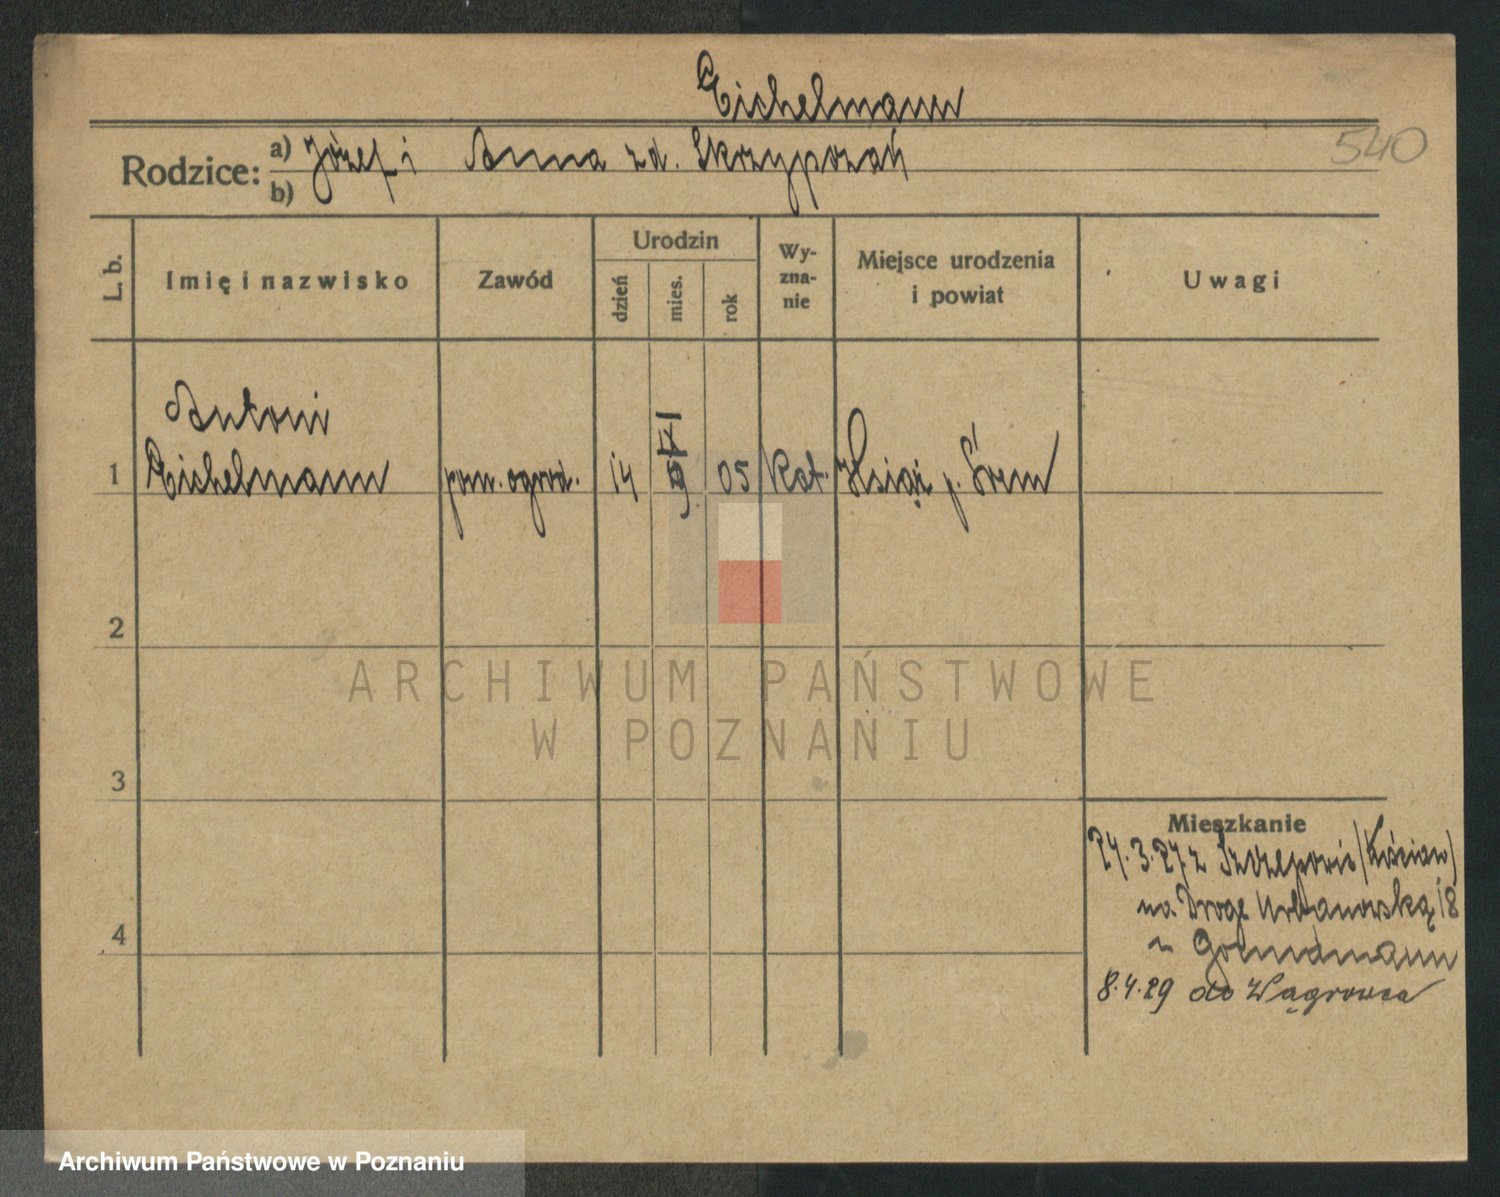 Eichelmann
540
Rodzice: a) Józef i Anna zd. Skrzypczań
b)
L. b.
Imię i nazwisko
Zawód
Urodzin
dzień
mies.
rok
Wy-
zna-
nie
Miejsce urodzenia
i powiat
Uwagi
Antoni
1 Eichelmann pom. ogrod. 14 05 Kat. Książ p. Śrem
2
3
4
Mieszkanie
24.3.27 z (Kościan)
na Drogę Urbanowską 18
8.4.29 do Wągrowca
ARCHIWUM PAŃSTWOWE
W POZNANIU
Archiwum Państwowe w Poznaniu